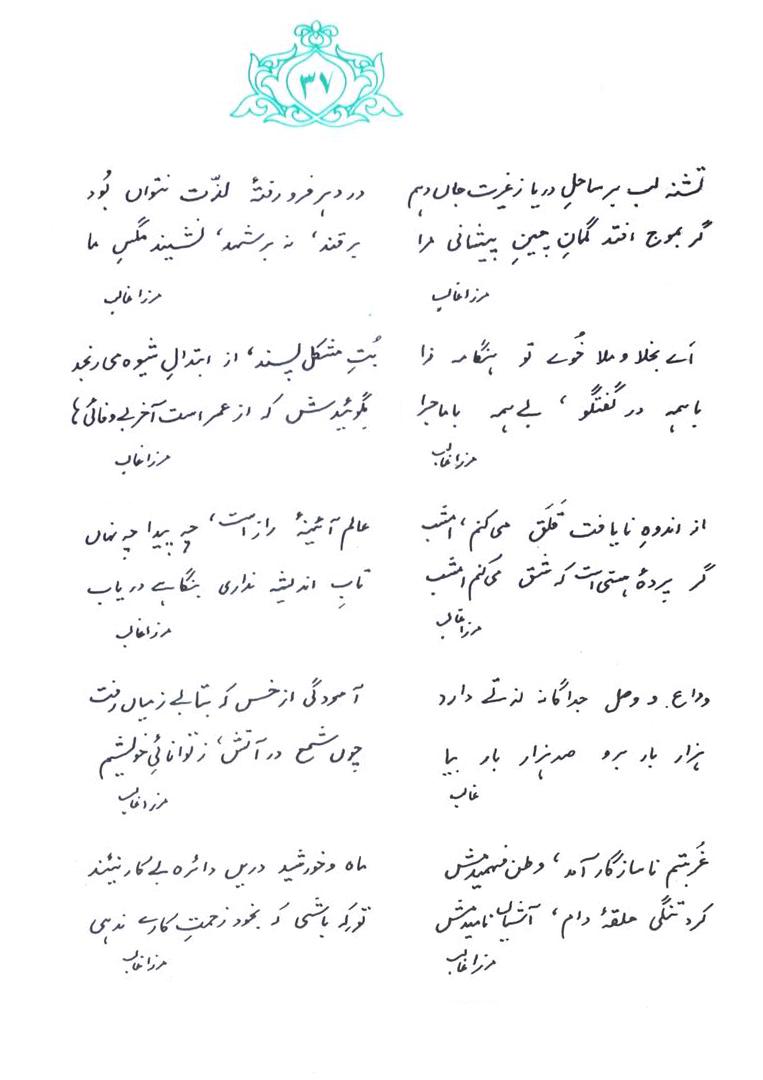 ۳۷
تشنہ لب بر ساحلِ دریا ز غیرت جاں دہم
گر بموج افتد گمانِ چینِ پیشانی مرا
مرزا غالب
در دہر فرو رفتۂ لذّت نتواں بُود
بر قند، نہ بر شہد، نشیند مگسِ ما
مرزا غالب
اَے بخلا و ملا خُوے تو ہنگامہ زا
با ہمہ در گفتگو، بے ہمہ با ماجرا
مرزا غالب
بُتِ مشکل پسند، از ابتدالِ شیوہ می رنجد
بگوئیدش کہ از عمر است آخر بے وفائی ہا
مرزا غالب
از اندوہِ نایافت قَلَق می کنم، امشب
گر پردۂ ہستی است کہ شق می کنم امشب
مرزا غالب
عالم آئینۂ راز است، چہ پیدا چہ نہاں
تابِ اندیشہ نداری بنگاہے دریاب
مرزا غالب
وداع و وصل جداگانہ لذتے دارد
ہزار بار برو صد ہزار بار بیا
غالب
آسودگی از خس کہ بتابے ز میاں رفت
چوں شمع در آتش، ز توانائیِ خویشیم
مرزا غالب
غُربتم ناسازگار آمد، وطن فہمیدمش
کرد تنگی حلقۂ دام، آشیاں نامیدمش
مرزا غالب
ماہ و خورشید دریں دائرہ بے کار نیند
تو کہ باشی کہ بخود زحمتِ کارے ندہی
مرزا غالب